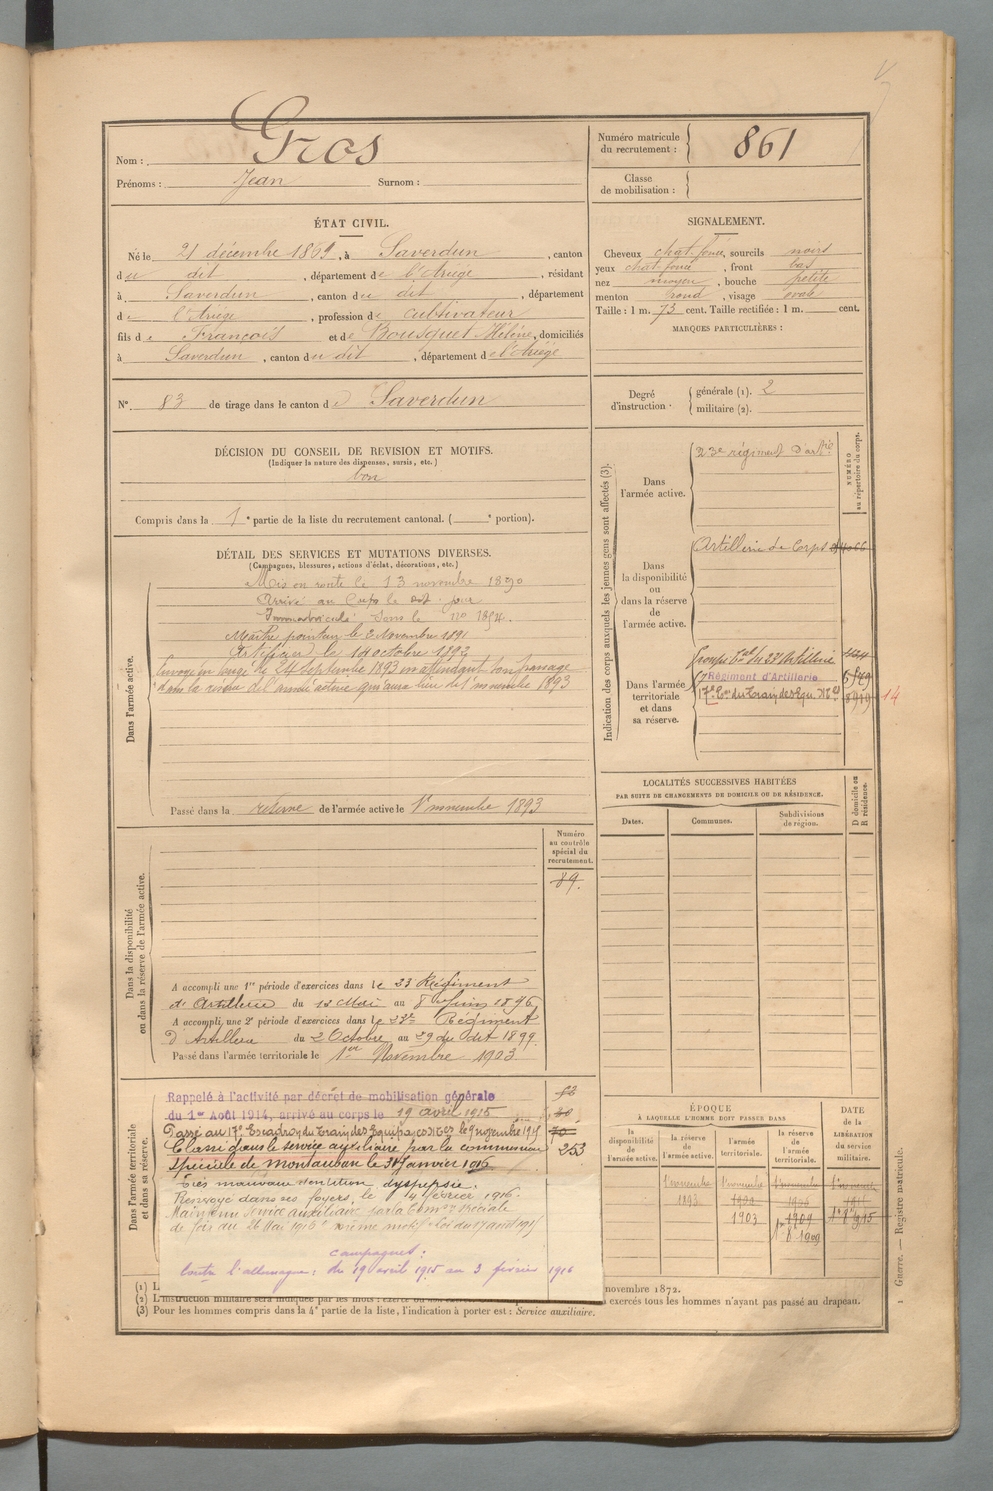 Nom : Gros
Prénoms : Jean Surnom :
Numéro matricule du recrutement : 861
Classe de mobilisation :
ÉTAT CIVIL.
Né le 21 décembre 1869, à Saverdun, canton
du dit, département de l'Ariège, résidant
à Saverdun, canton du dit, département
de l'Ariège, profession de cultivateur
fils de François et de Bousquet Hélène, domiciliés
à Saverdun, canton du dit, département de l'Ariège
N° 83 de tirage dans le canton de Saverdun
SIGNALEMENT.
Cheveux chat. foncé, sourcils noirs
yeux chat. foncé, front bas
nez moyen, bouche petite
menton rond, visage ovale
Taille : 1 m. 73 cent. Taille rectifiée : 1 m. cent.
MARQUES PARTICULIÈRES :
Degré d'instruction.
générale (1). 2
militaire (2).
DÉCISION DU CONSEIL DE REVISION ET MOTIFS.
(Indiquer la nature des dispenses, sursis, etc.)
bon
Compris dans la 1e partie de la liste du recrutement cantonal. ( e portion).
DÉTAIL DES SERVICES ET MUTATIONS DIVERSES.
(Campagnes, blessures, actions d'éclat, décorations, etc.)
Dans l'armée active.
Mis en route le 13 novembre 1890
Arrivé au Corps le dit jour
Immatriculé sous le no 1854.
Maître pointeur le 2 Novembre 1891
Artificier le 14 octobre 1892
Envoyé en congé le 24 Septembre 1893 en attendant son passage
dans la réserve de l'armée active qui aura lieu le 1er novembre 1893
Passé dans la réserve de l'armée active le 1er novembre 1893
Indication des corps auxquels les jeunes gens sont affectés (3).
NUMÉRO au répertoire du corps.
Dans l'armée active.
23e régiment d'artrie
Dans la disponibilité ou dans la réserve de l'armée active.
Artillerie de Corps
Dans l'armée territoriale et dans sa réserve.
Groupe tal du 23 Artillerie
Régiment d'Artillerie
17e Eon du Train des Equ. Mres 8919 14
LOCALITÉS SUCCESSIVES HABITÉES
PAR SUITE DE CHANGEMENTS DE DOMICILE OU DE RÉSIDENCE.
Dates. Communes. Subdivisions de région. D domicile ou R résidence.
Dans la disponibilité ou dans la réserve de l'armée active.
Numéro au contrôle spécial du recrutement.
89.
A accompli une 1re période d'exercices dans le 23 Régiment
d'Artillerie du 12 Mai au 8 Juin 1896
A accompli une 2e période d'exercices dans le 23e Régiment
d'Artillerie du 2 Octobre au 29 du dit 1899.
Passé dans l'armée territoriale le 1er Novembre 1903
Dans l'armée territoriale et dans sa réserve.
Rappelé à l'activité par décret de mobilisation générale
du 1er Août 1914, arrivé au corps le 19 avril 1915
Passé au 17e Escadron du Train des Equipages Mres le 9 novembre 1915.
Classé dans le service auxiliaire par la commission
spéciale de Montauban le 31 Janvier 1916
253
très mauvaise dentition dyspepsie.
Renvoyé dans ses foyers, le 4 février 1916.
Maintenu Service auxiliaire par la Comon Spéciale
de Foix du 26 Mai 1916 même motif. Loi du 17 août 1915
campagnes :
Contre l'allemagne : du 19 avril 1915 au 3 février 1916
ÉPOQUE
À LAQUELLE L'HOMME DOIT PASSER DANS
DATE de la LIBÉRATION du service militaire.
la disponibilité de l'armée active.
la réserve de l'armée active.
l'armée territoriale.
la réserve de l'armée territoriale.
1er novembre 1893
1903
1909
(1) L
novembre 1872.
(2) L'instruction militaire sera indiquée par les mots :
exercés tous les hommes n'ayant pas passé au drapeau.
(3) Pour les hommes compris dans la 4e partie de la liste, l'indication à porter est : Service auxiliaire.
Guerre. — Registre matricule.